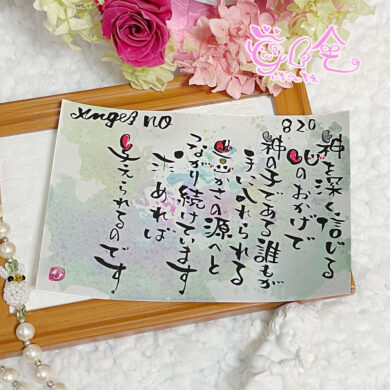 Angel NO
820
神を深く信じる
心のおかげで
神の子である誰もが
手に入れられる
豊かさの源へと
つながり続けています
求めれば
与えられるのです